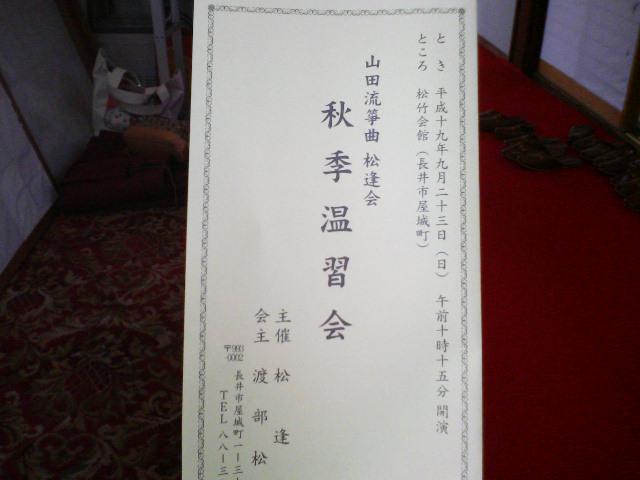 とき 平成十九年九月二十三日(日) 午前十時十五分 開演
ところ 松竹会館(長井市屋城町)
山田流箏曲 松逢会
秋季温習会
主催 松逢
会主 渡部松
〒993-0002
長井市屋城町一ー三
TEL 八八ー三